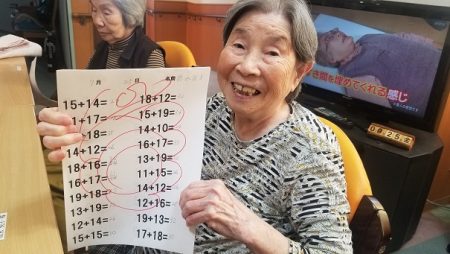 月
名前
15+14=
18+12=
1+17=
15+19=
+18=
14+10=
14+12=
16+17=
18+16=
13+19=
17+16=
11+15=
19+18=
14+12=
13+19=
12+16=
12+14=
19+13=
15+15=
17+18=
き間を埋めてくれる感じ